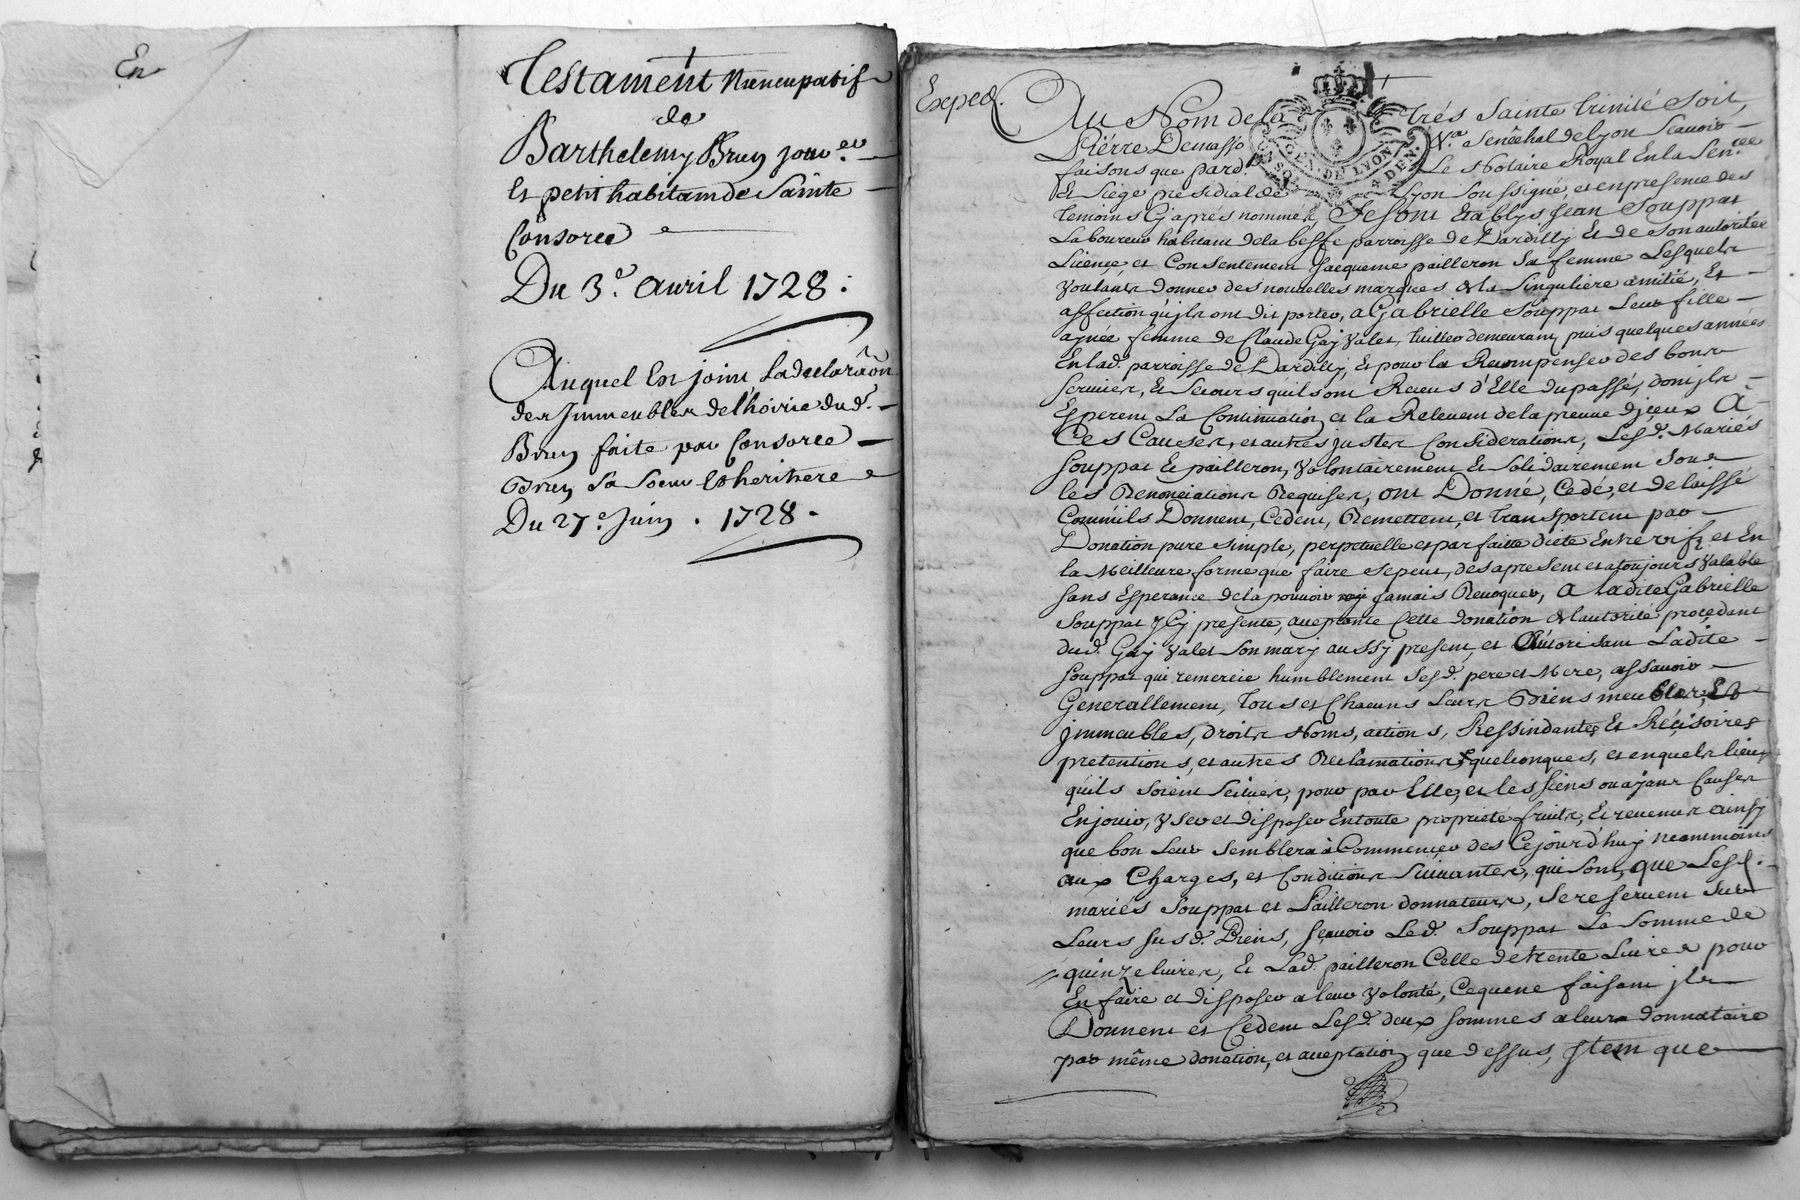 En
Testament Nuncupatif
de
Barthelemy Brun jour.er
Et petit habitant de Sainte
Consorce
Du 3.e avril 1728.
Auquel Est joint La declaraõn
des Immeubles de l'hoirie dud.
Brun faite par Consorce
Brun Sa Soeur Et heritiere
Du 27.e Juin . 1728.
Exped.
Au Nom de la Très Sainte Trinité Soit,
Pierre Demasso Senêchal de Lyon Scavoir
faisons que pard. Le Notaire Royal En la Sen.cée
Et Siege presidial de Lyon Soussigné et en presence des
temoins Cy après nommés, Se sont Etablys Jean Souppat
Laboureur habitant de la besse parroisse de Dardilly Et de Son autorité
Licence, et Consentement Jacqueme pailleron Sa femme Lesquels
voulants donner des nouvelles marques de la Singuliere amitié, Et
affection qu'jls ont dit porter, a Gabrielle Souppat Leur fille
aynée femme de Claude Gay valet, tuillier demeurant, puis quelques années
En lad. parroisse de Dardilly, Et pour la Recompenser des bons
services, Et Secours qu'ils ont Receus d'Elle du passé, dont jls
Esperent La Continuation et la Relevent de la preuve d'jceux A
Ces Causes, et autres justes Considerations, Lesd. Mariés
Souppat Et pailleron, volontairement Et Solidairement Sous
les Renonciations Requises, ont Donné, Cedé, et delaissé
Comm'ils Donnent, Cedent, Remettent, et transportent par
Donation pure simple, perpetuelle et parfaitte diete Entre vifs et En
la Meilleure forme que faire Se peut, des apresent et a toujours valable
sans Esperance de la pouvoir jamais Revoquer, A ladite Gabrielle
Souppat jCy presente, acceptante Cette donation de l'autorité procedant
dud. Gay valet Son mary aussy present, et Autorisant Ladite
Souppat qui remercie humblement Sesd. pere et Mere, assavoir
Generallement, tous et Chacuns Leurs Biens meubles, Et
jmmeubles, droits Noms, actions, Ressindants Et Recisoires
pretentions, et autres Reclamations quelconques, et en quels lieux
qu'ils Soient Scitués, pour par Elle, et les Siens ou ayant Causes
En jouir, vser et disposer En toute proprieté fruits, Et revenus ainsy
que bon Leur Semblera à Commencer des Cejourd'huy neanmoins
aux Charges, et Conditions Suivantes, qui Sont, que Lesd.
mariés Souppat et Pailleron donnateurs, Se reservent Sur
Leurs Susd. Biens, Scavoir Led. Souppat La Somme de
quinze livres, Et Lad. pailleron Celle de trente Livres pour
En faire et disposer a leur volonté, Ce que ne faisant jls
Donnent et Cedent Lesd. deux Sommes a leur donnataire
par même donation, et acceptation que dessus, Jtem que